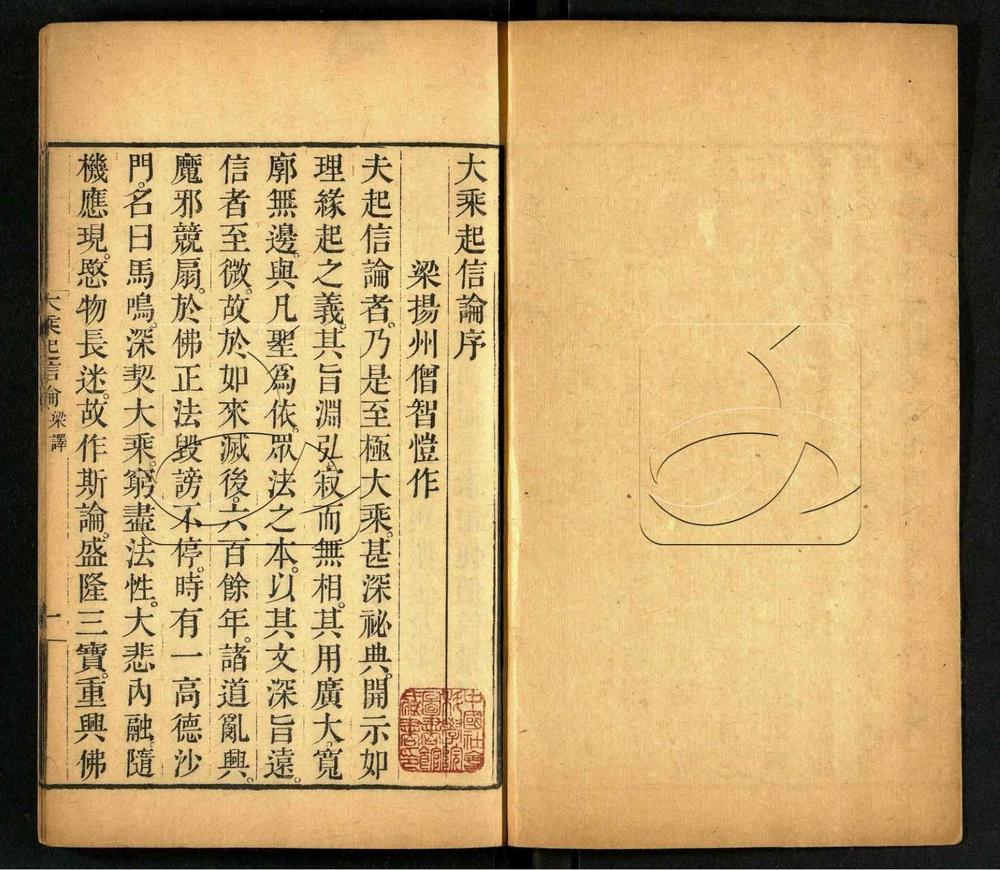 大乘起信論序
梁揚州僧智愷作
夫起信論者。乃是至極大乘。甚深祕典。開示如
理緣起之義。其旨淵弘。寂而無相。其用廣大。寬
廓無邊。與凡聖爲依。眾法之本。以其文深旨遠。
信者至微。故於如來滅後。六百餘年。諸道亂興。
魔邪競扇。於佛正法毀謗不停。時有一高德沙
門。名曰馬鳴。深契大乘。窮盡法性。大悲內融。隨
機應現。愍物長迷。故作斯論。盛隆三寶。重興佛
大乘起信論 梁譯
一
中國社會
科學院
圖書館
藏書印